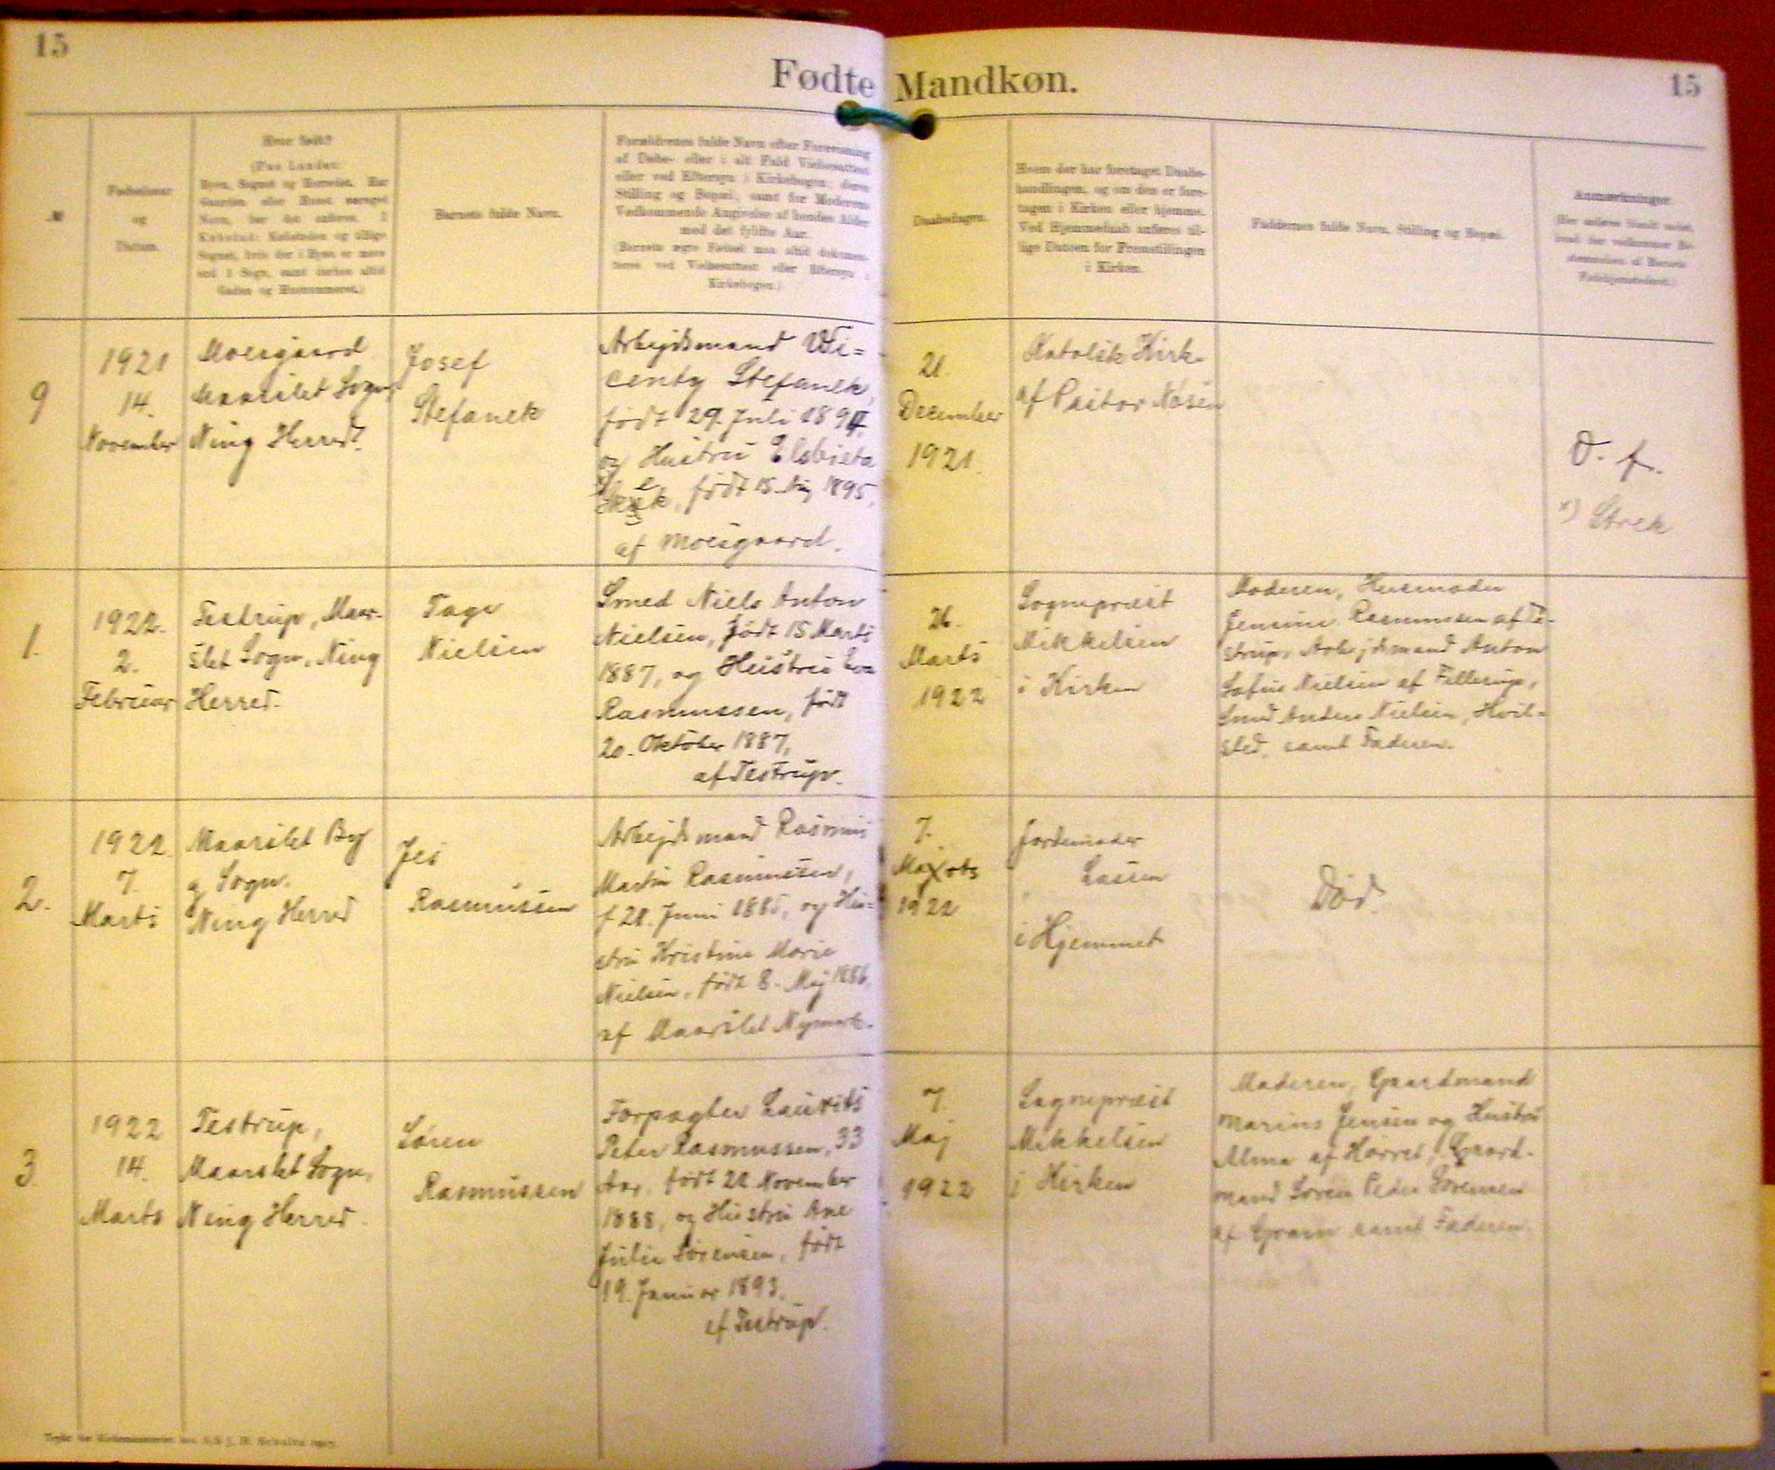 15
Fødte Mandkøn.
15
№
Fødselsaar
og
Datum.
Hvor født?
(Paa Landet:
Byen, Sognet og Herredet. Har
Gaarden eller Huset særeget
Navn, bør det anføres. I
Købstad: Købstaden og tillige
Sognet, hvis der i Byen er mere
end 1 Sogn, samt derhos altid
Gaden og Husnummeret.)
Barnets fulde Navn.
Forældrenes fulde Navn efter Forevisning
af Døbe- eller i alt Fald Vielsesattest
eller ved Eftersyn i Kirkebogen; deres
Stilling og Bopæl, samt for Moderens
Vedkommende Angivelse af hendes Alder
med det fyldte Aar.
(Barnets ægte Fødsel maa altid dokumen-
teres ved Vielsesattest eller Eftersyn i
Kirkebogen.)
Daabsdagen.
Hvem der har foretaget Daabs-
handlingen, og om den er fore-
tagen i Kirken eller hjemme.
Ved Hjemmedaab anføres til-
lige Datoen for Fremstillingen
i Kirken.
Faddernes fulde Navn, Stilling og Bopæl.
Anmærkninger.
9
1921
14.
November
Moesgaard
Maarslet Sogn
Ning Herred.
Josef
Stefanek
Arbejdsmand Wi=
centy Stefanek,
født 29. Juli 189
og Hustru Elsbieta
født 15. Aug 1895,
af Moesgaard.
21.
December
1921.
Katolsk Kirke
af Pastor
D. f.
x) Strek
1.
1922.
2.
Februar
Testrup, Maar-
slet Sogn, Ning
Herred.
Tage
Nielsen
Smed Niels Anton
Nielsen, født 15 Marts
1887, og Hustru
Rasmussen, født
20. Oktober 1887,
af Testrup.
26.
Marts
1922
Sognepræst
Mikkelsen
i Kirken
Moderen, Husmoder
Jensine Rasmussen af Te-
strup, Arbejdsmand Anton
Sofus Nielsen af Fillerup,
Smed Anders Nielsen, Hvil-
sted, samt Faderen.
2.
1922.
7.
Marts
Maarslet By
og Sogn.
Ning Herred
Jes
Rasmussen
Arbejdsmand Rasmus
Martin Rasmussen,
f 21. Juni 1885, og Hu=
stru Kristine Marie
Nielsen, født 8. Maj 1886,
af Maarslet Nymark.
7.
Marts
1922
Jordemoder
Lassen
i Hjemmet
Død.
3
1922
14.
Marts
Testrup,
Maarslet Sogn,
Ning Herred.
Søren
Rasmussen
Forpagter Laurits
Peter Rasmussen, 33
Aar, født 22 November
1888, og Hustru Ane
Julie Sørensen, født
19. Januar 1893.
af Testrup.
7.
Maj
1922
Sognepræst
Mikkelsen
i Kirken
Moderen, Gaardmand
Marius Jensen og Hustru
Alma af Hørret, Gaard-
mand Søren Peder Sørensen
af Gram samt Faderen.